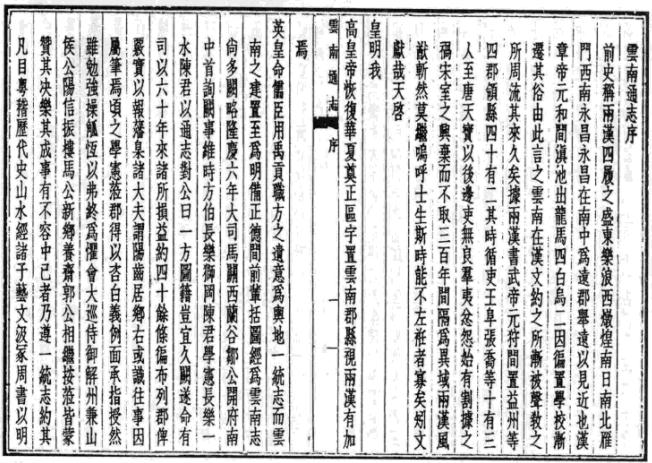 雲南通志序
前史稱兩漢四履之盛東樂浪西燉煌南日南北雁
門西南永昌永昌在南中爲遠郡舉遠以見近也漢
章帝元和間滇池出龍馬四白烏二因徧置學校漸
遷其俗由此言之雲南在漢文約之所漸被聲敎之
所周流其來久矣據兩漢書武帝元狩間置益州等
四郡領縣四十有二其時循吏王阜張喬等十有三
人至唐天寳以後邊吏無良羣夷忿怨始有割據之
禍宋室之興棄而不取三百年間隔爲異域兩漢風
猷斬然莫繼嗚呼士生斯時能不左袵者寡矣矧文
獻哉天啓
皇明我
高皇帝恢復華夏奠正區宇置雲南郡縣視兩漢有加
雲南通志 序 一
焉
英皇命儒臣用禹貢職方之遺意爲輿地一統志而雲
南之建置至爲明備正德間前輩括圖經爲雲南志
尚多闕略隆慶六年大司馬關西蘭谷鄒公開府南
中首詢闕事維時方伯長樂獅岡陳君學憲長樂一
水陳君以通志對公曰一方圖籍豈宜久闕遂命有
司以六十年來諸所損益約四十餘條徧布列郡俾
覈實以報藩臬諸大夫謂陽齒居鄉右或識往事因
屬筆焉頃之學憲蒞郡得以咨白義例面承指授然
雖勉強操觚恆以弗終爲懼會大巡侍御解州兼山
侯公陽信振樓馬公新鄉養齋郭公相繼按蒞皆蒙
贊其决樂其成事有不容中已者乃遵一統志約其
凡目粤稽歷代史山水經諸子藝文汲冢周書以明